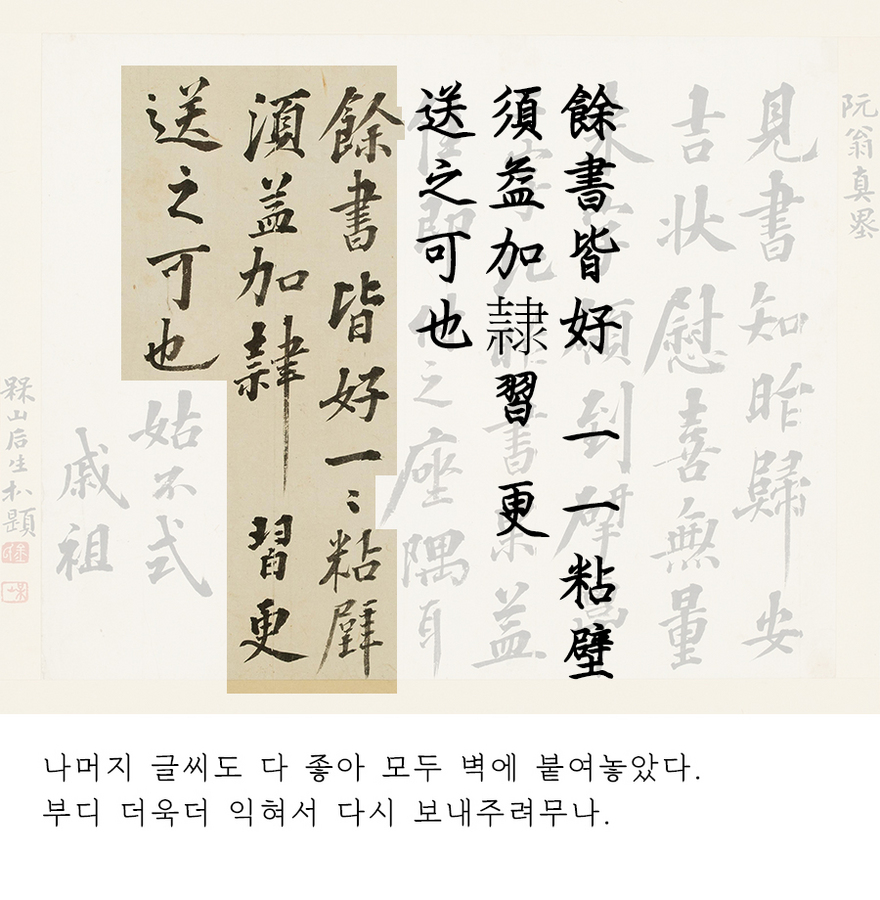 阮翁真墨
見書知昨歸安
吉狀慰喜無量
餘書皆好一一粘壁
須益加隸習更
送之可也
之座隅耳
餘書皆好一〻粘壁
須益加隸習更
送之可也姑不式
戚祖
槑山后生朴題
나머지 글씨도 다 좋아 모두 벽에 붙여놓았다.
부디 더욱더 익혀서 다시 보내주려무나.